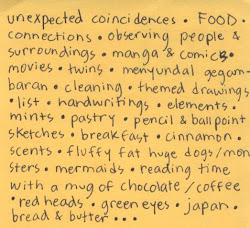 unexpected coincidences • FOOD •
connections • observing people &
surroundings • manga & comics •
movies • twins • menyundal gegam-
baran • cleaning • themed drawings
• list • handwritings • elements •
mints • pastry • pencil & ballpoint
sketches • breakfast • cinnamon •
scents • fluffy fat huge dogs/mon
sters • mermaids • reading time
with a mug of chocolate/coffee
• red heads • green eyes • japan •
bread & butter •••